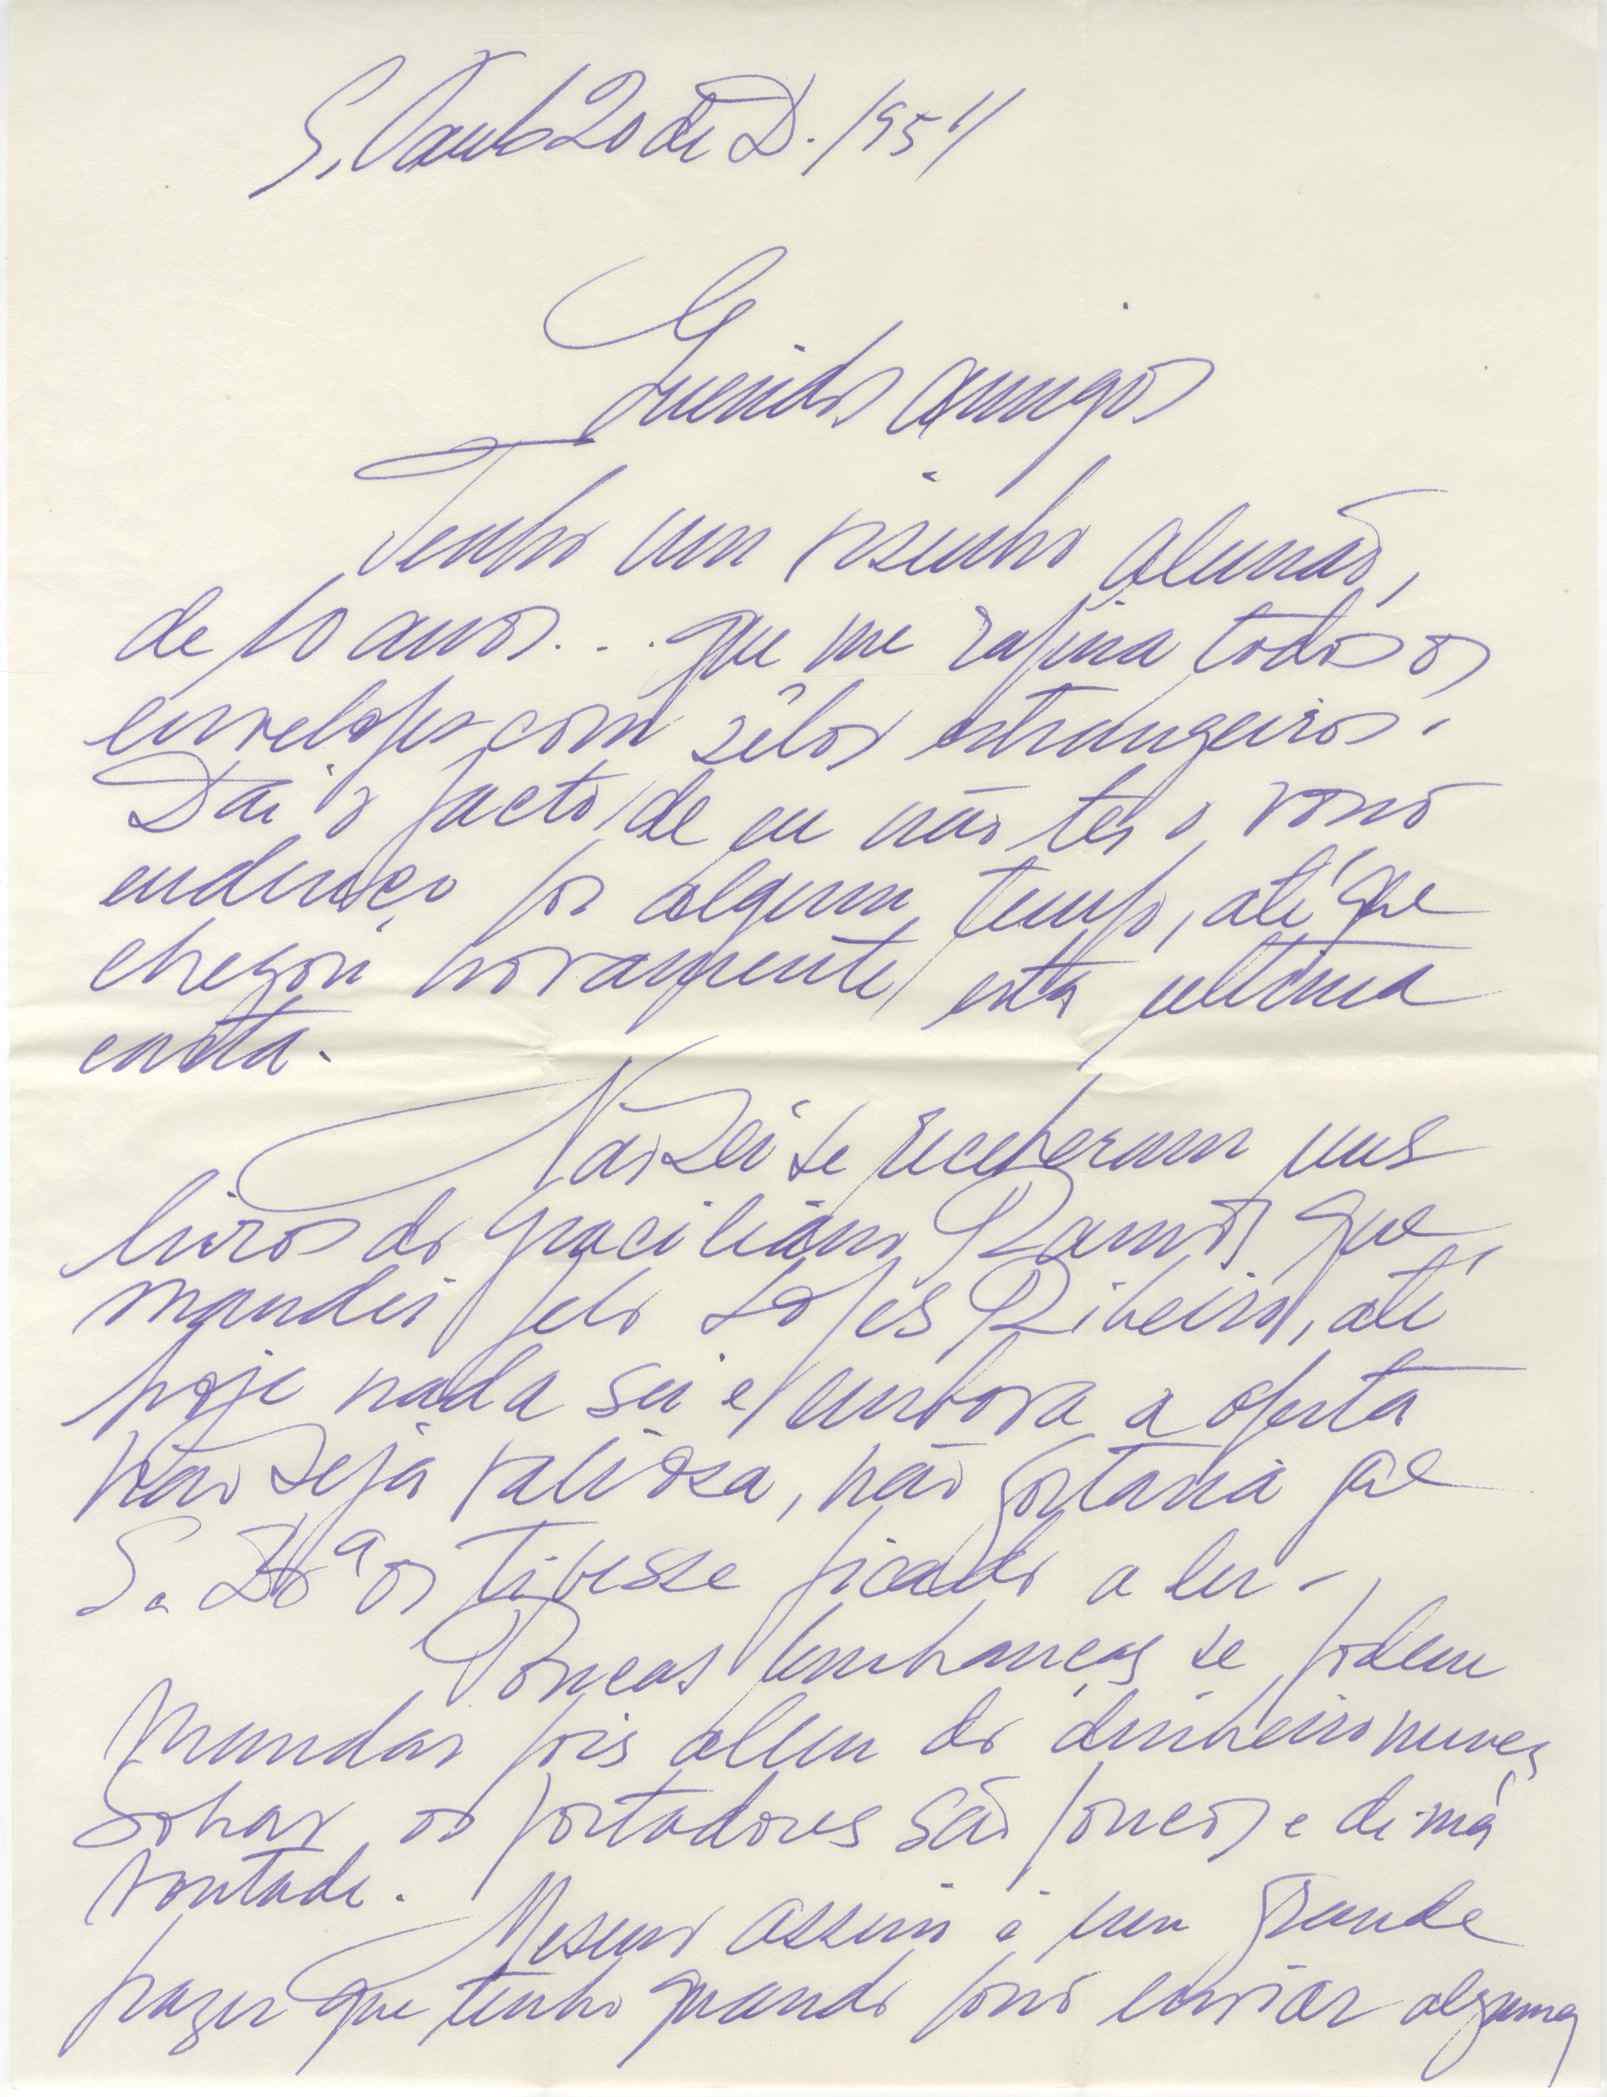 S. Paulo 20 de D. 1954
Queridos amigos
Tenho um visinho alemão,
de 10 anos... que me rapina todos os
envelopes com sêlos estrangeiros.
Dai o facto de eu não ter o vosso
endereço por algum tempo, até que
chegou novamente esta ultima
carta.
Não sei se receberam uns
livros do Graciliano Ramos que
mandei pelo Lopes Ribeiro, até
hoje nada sei e embora a oferta
não seja valiosa, não gostaria que
S. os tivesse ficado a ler.
Poucas lembranças se podem
mandar pois alem do dinheiro nunca
sobrar os portadores são poucos e de má
vontade.
Mesmo assim é um grande
prazer que tenho quando posso enviar alguma